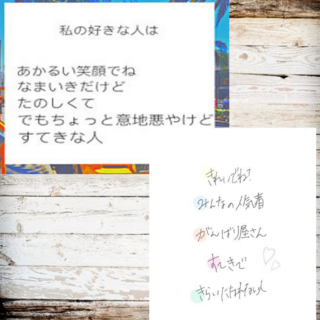 私の好きな人は
あかるい笑顔でね
なまいきだけど
たのしくて
でもちょっと意地悪やけど
すてきな人
きれいでね
みんなの人気者
がんばり屋さん
すてきで
きらいになれない人